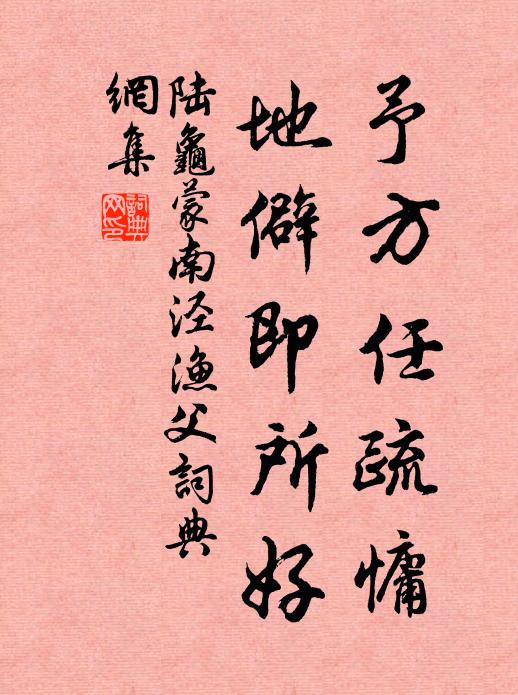 予方任疏慵
地僻即所好
陆龜蒙南泾漁父詞典
網集
詞典网印